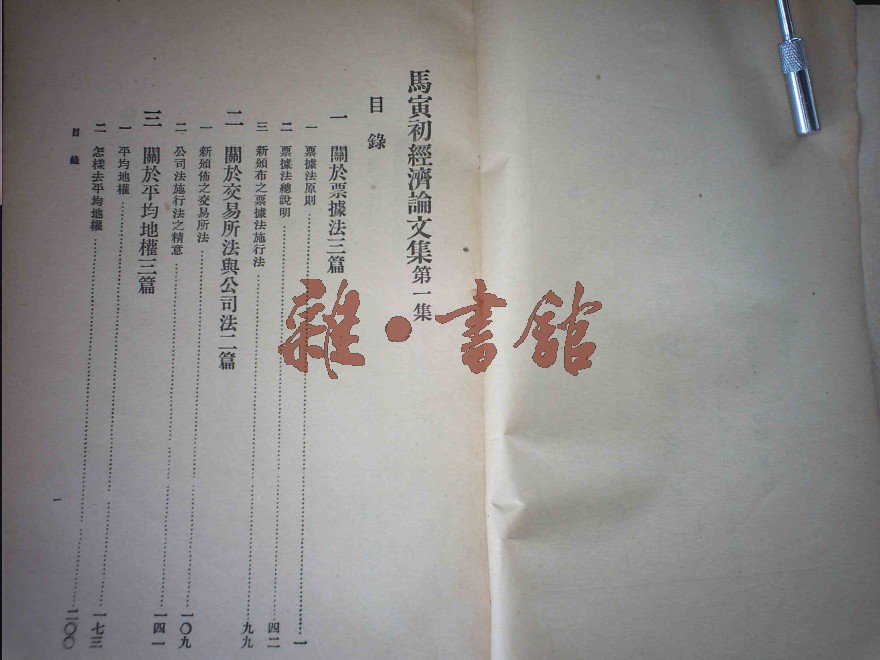 馬寅初經濟論文集第一集
目錄
一 關於票據法三篇
一 票據法原則……一
二 票據法總說明……四二
三 新頒布之票據法施行法……九九
二 關於交易所法與公司法二篇
一 新頒佈之交易所法……一〇九
二 公司法施行法之精意……一四一
三 關於平均地權三篇
一 平均地權……一七三
二 怎樣去平均地權……二〇〇
目錄
一
雜·書館